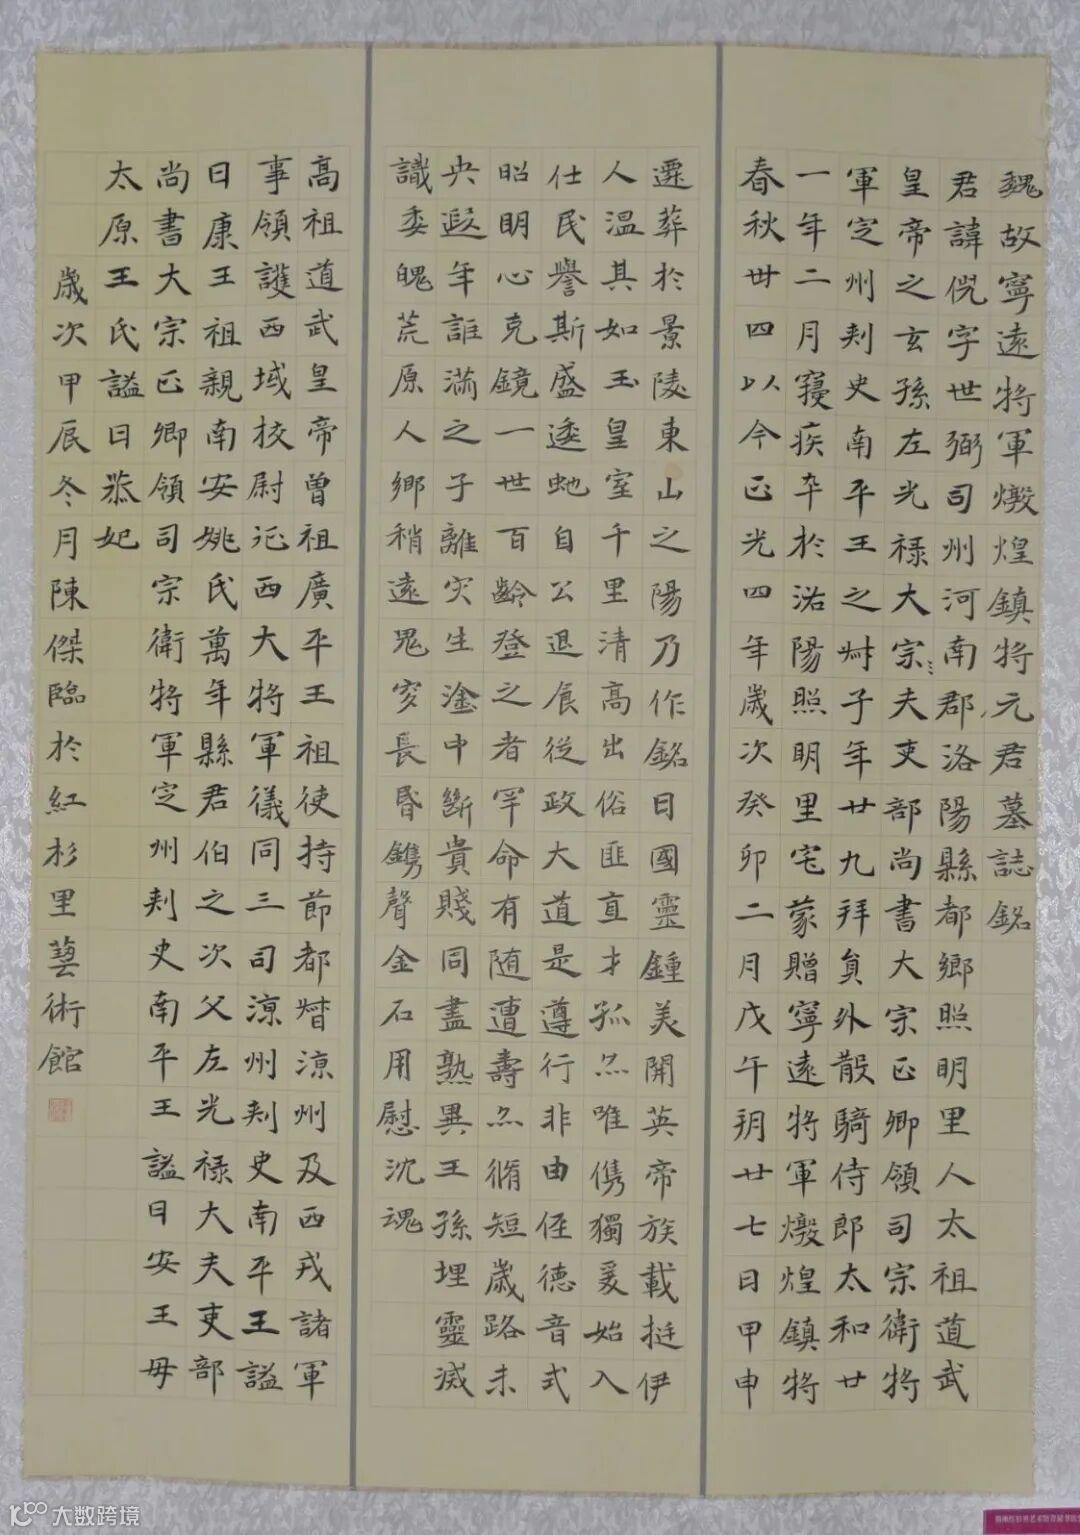 魏故寧遠將軍燉煌鎮將元君墓誌銘
君諱倪字世弼司州河南郡洛陽縣都鄉照明里人太祖道武
皇帝之玄孫左光祿大宗夫吏部尚書大宗正卿領司宗衛將
軍定州刾史南平王之叔子年廿九拜負外散騎侍郎太和廿
一年二月寢疾卒於洛陽照明里宅蒙贈寧遠將軍燉煌鎮將
春秋丗四以今正光四年歲次癸卯二月戊午朔廿七日甲申
遷葬於景陵東山之陽乃作銘曰國靈鍾美開英帝族載挺伊
人溫其如玉皇室千里清高出俗匪直才孤亦唯儁獨爰始入
仕民譽斯盛逶虵自公退食從政大道是遵行非由侄德音式
昭明心克鏡一世百齡登之者罕命有随遭壽亦脩短歲路未
央遐年誰滿之子離灾生淦中斷貴賤同盡熟異王孫埋靈滅
識委魄荒原人鄉稍遠鬼穸長昏鐫聲金石用慰沈魂
高祖道武皇帝曾祖廣平王祖使持節都督涼州及西戎諸軍
事領護西域校尉征西大將軍儀同三司涼州刾史南平王謚
曰康王祖親南安姚氏萬年縣君伯之次父左光祿大夫吏部
尚書大宗正卿領司宗衛將軍定州刾史南平王謚曰安王毋
太原王氏謚曰恭妃
歲次甲辰冬月陳傑臨於紅杉里藝術館
大数跨境